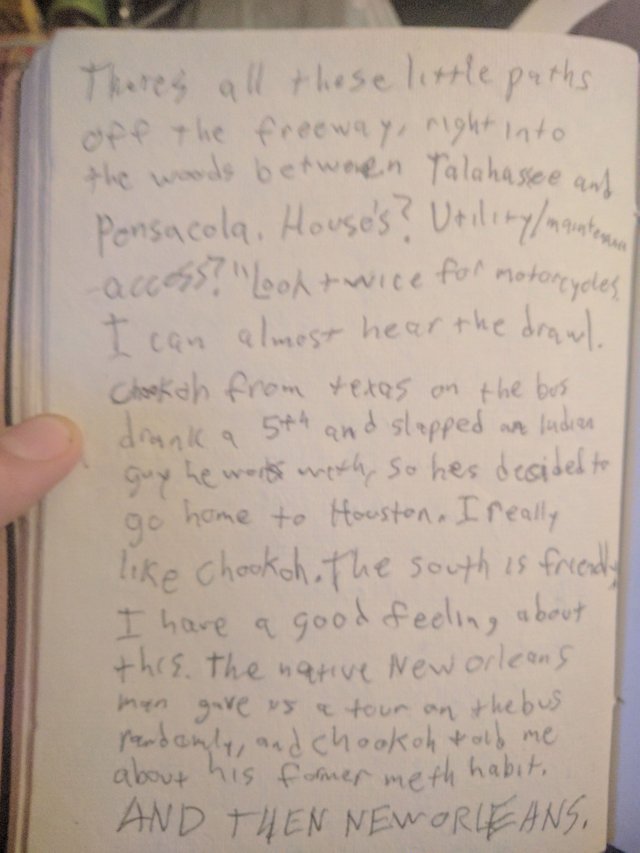 Thares all these little paths
off the freeway, right into
the woods between Talahassee and
Pensacola. House's? Utility/maintenance
access? "Look twice for motorcycles.
I can almost hear the drawl.
Chookoh from texas on the bus
drank a 5th and slapped an Indian
guy he works with, so hes desided to
go home to Houston. I really
like Chookoh. The south is friendly
I have a good feeling about
this. The native New orleans
man gave us a tour on the bus
randomly, and chookoh told me
about his former meth habit.
AND THEN NEW ORLEANS.